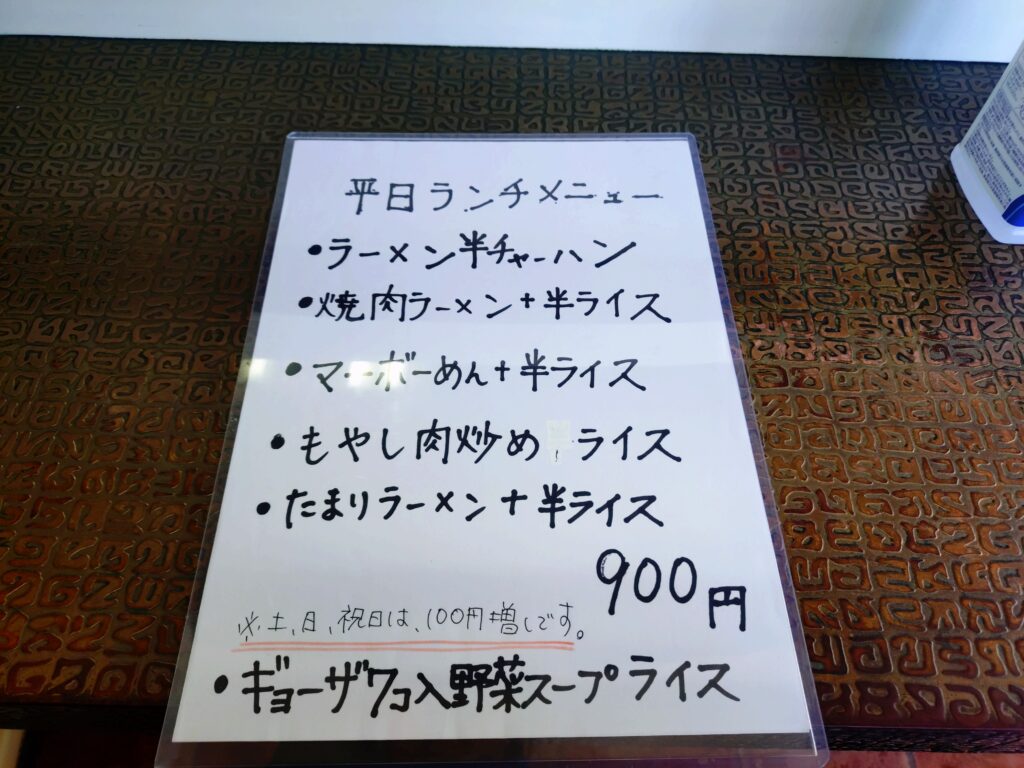 平日ランチメニュー
・ラーメン半チャーハン
・焼肉ラーメン+半ライス
・マーボーめん+半ライス
・もやし肉炒め ライス
・たまりラーメン+半ライス
900円
※土、日、祝日は、100円増しです。
・ギョーザワコ入野菜スープライス